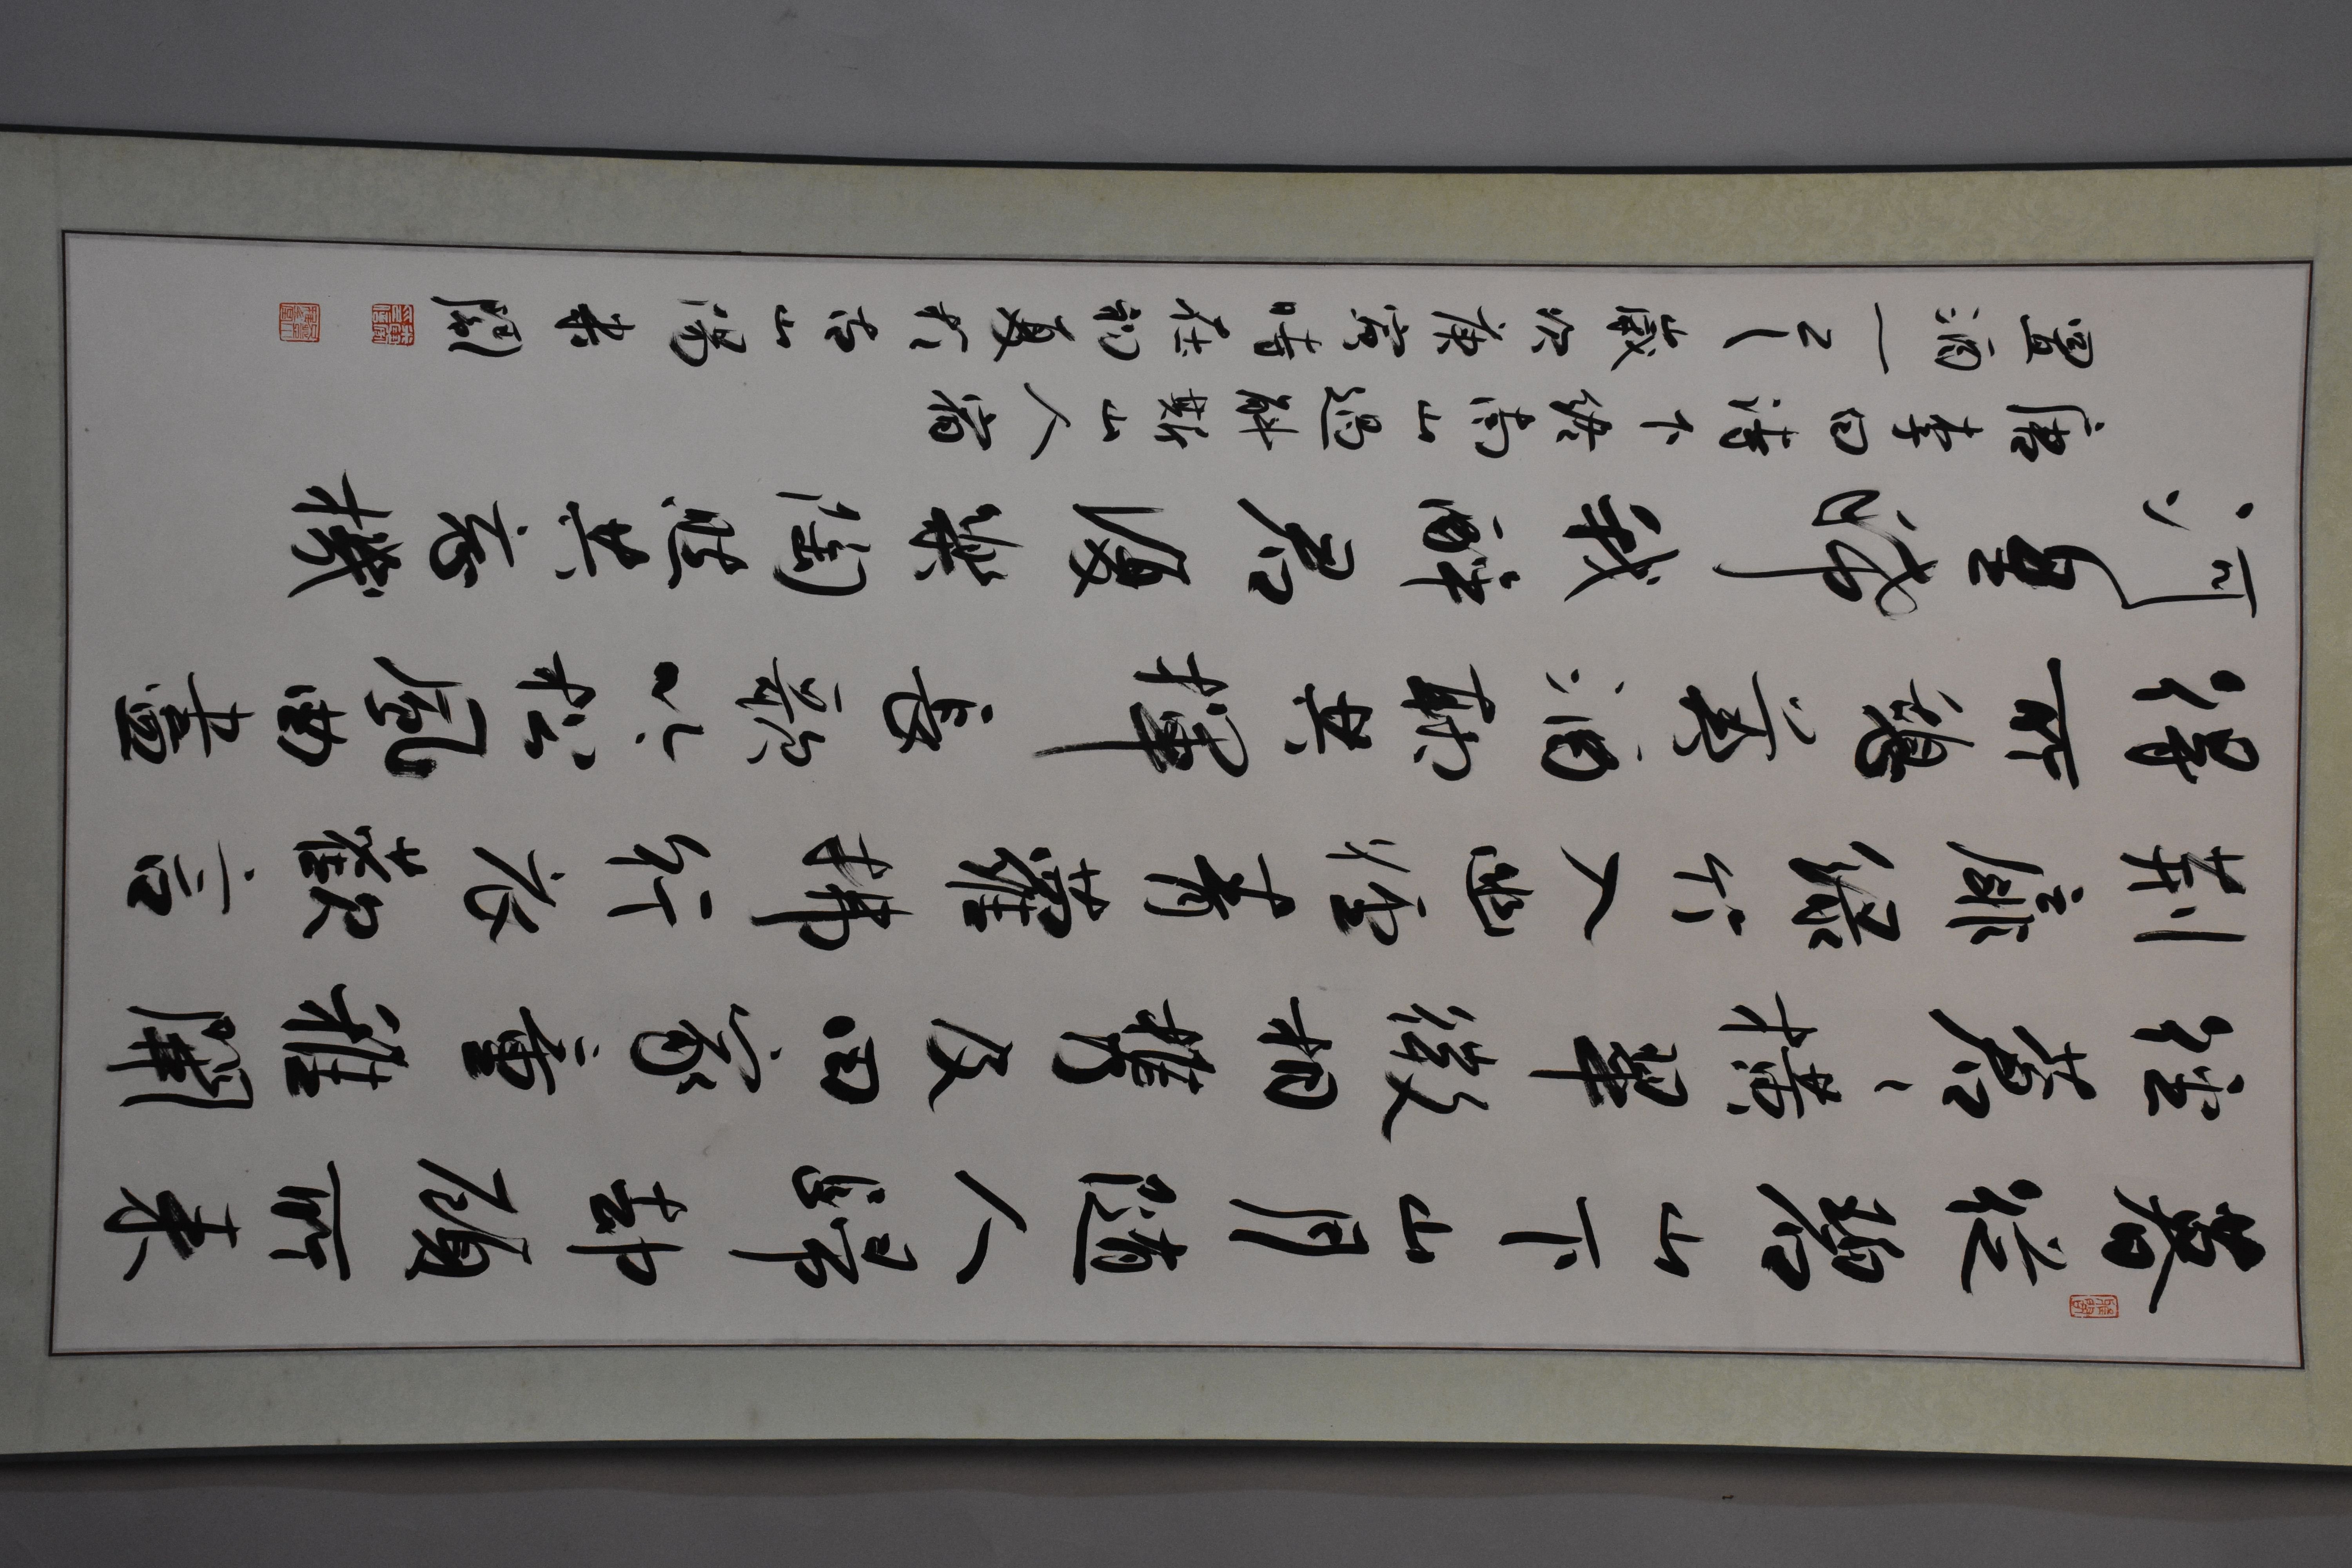 暮從碧山下山月隨人歸卻顧所來
徑蒼々橫翠微相攜及田家童稚開
荊扉綠竹入幽徑青蘿拂行衣歡言
得所憩美酒聊共揮長歌吟松風曲盡
河星稀我醉君復樂陶然共忘機
唐李白詩下終南山過斛斯山人宿
置酒一歲次庚寅時在初夏於古山陽